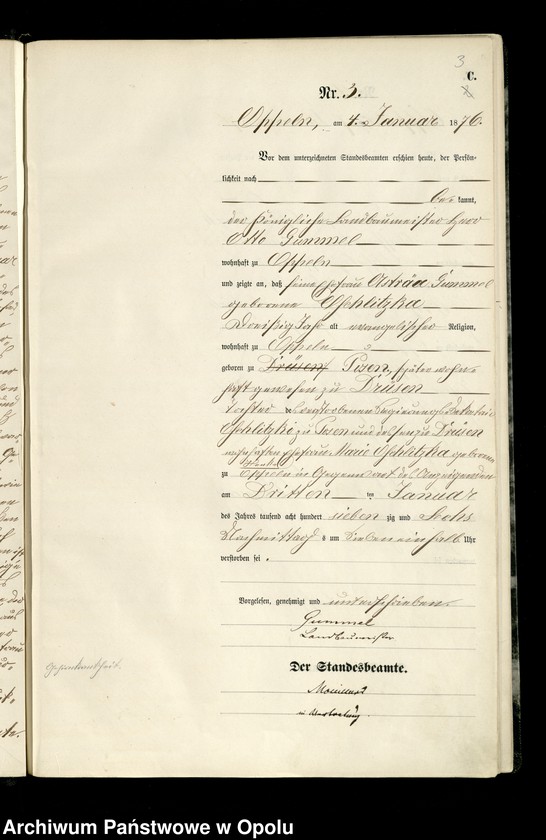 3
C.
Nr. 3.
Oppeln, am 4. Januar 1876.
Vor dem unterzeichneten Standesbeamten erschien heute, der Persön-
lichkeit nach
be kannt,
der Königliche Landbaumeister Herr
Otto Gummel
wohnhaft zu Oppeln
und zeigte an, daß seine Ehefrau Gummel
geborene
Dreißig Jahr alt evangelischer Religion,
wohnhaft zu Oppeln
geboren zu Posen, später wohn-
haft gewesen zu Driesen
Tochter des verstorbenen Regierungs Sekretair
zu Posen und dessen zu Driesen
Ehefrau Marie geborenen
zu Oppeln in Gegenwart des Anzeigenden
am Dritten ten Januar
des Jahres tausend acht hundert sieben zig und Sechs
Nachmittags um sieben einhalb Uhr
verstorben sei.
Vorgelesen, genehmigt und unterschrieben
Gummel
Landbaumeister
Der Standesbeamte.
Archiwum Państwowe w Opolu